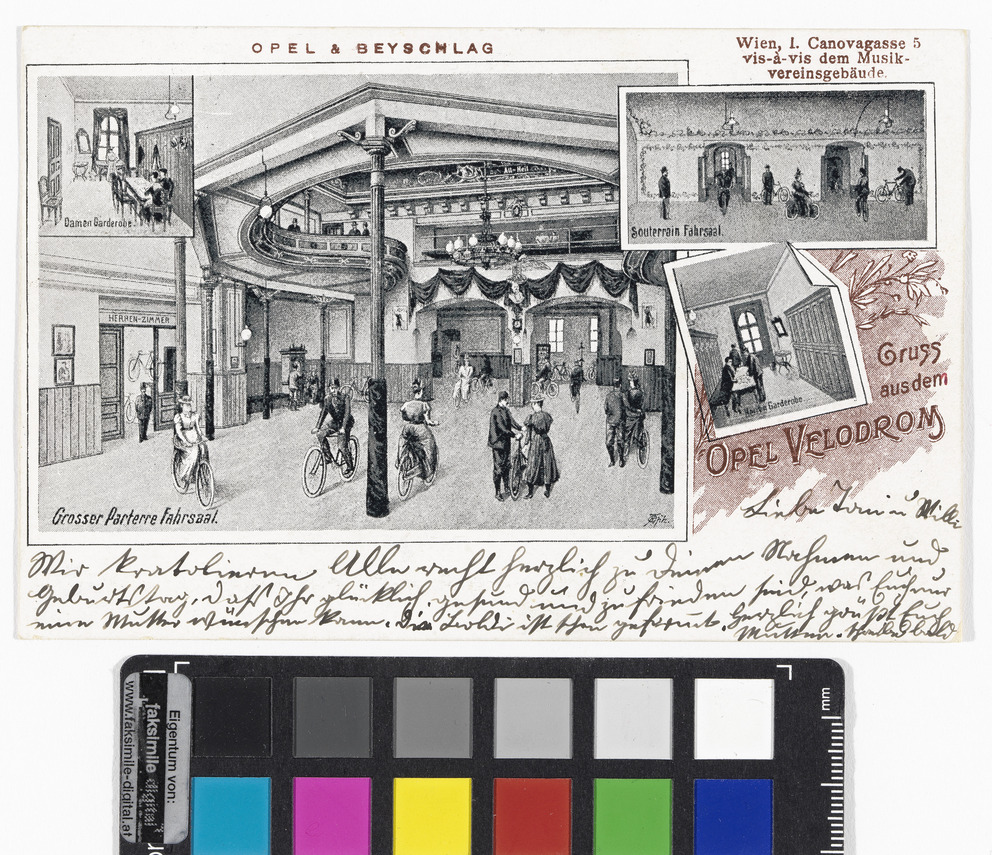 OPEL & BEYSCHLAG
Wien, I. Canovagasse 5
vis-à-vis dem Musik-
vereinsgebäude.
Damen Garderobe.
All-Heil
HERREN-ZIMMER
Souterrain Fahrsaal.
Garderobe
Grosser Parterre Fahrsaal.
Gruss
aus dem
OPEL VELODROM
Liebe Toni u Willi
Wir kratolieren Alle recht herzlich zu Deinen Nahmen und
Geburtstag, daß Ihr glücklich, gesund und zu frieden seid, was Euch nur
eine Mutter wünschen kann. Die Poldi ist schon. Herzlich grüßt Euch
Mutter.
mm
Eigentum von:
faksimile digital
www.faksimile-digital.at